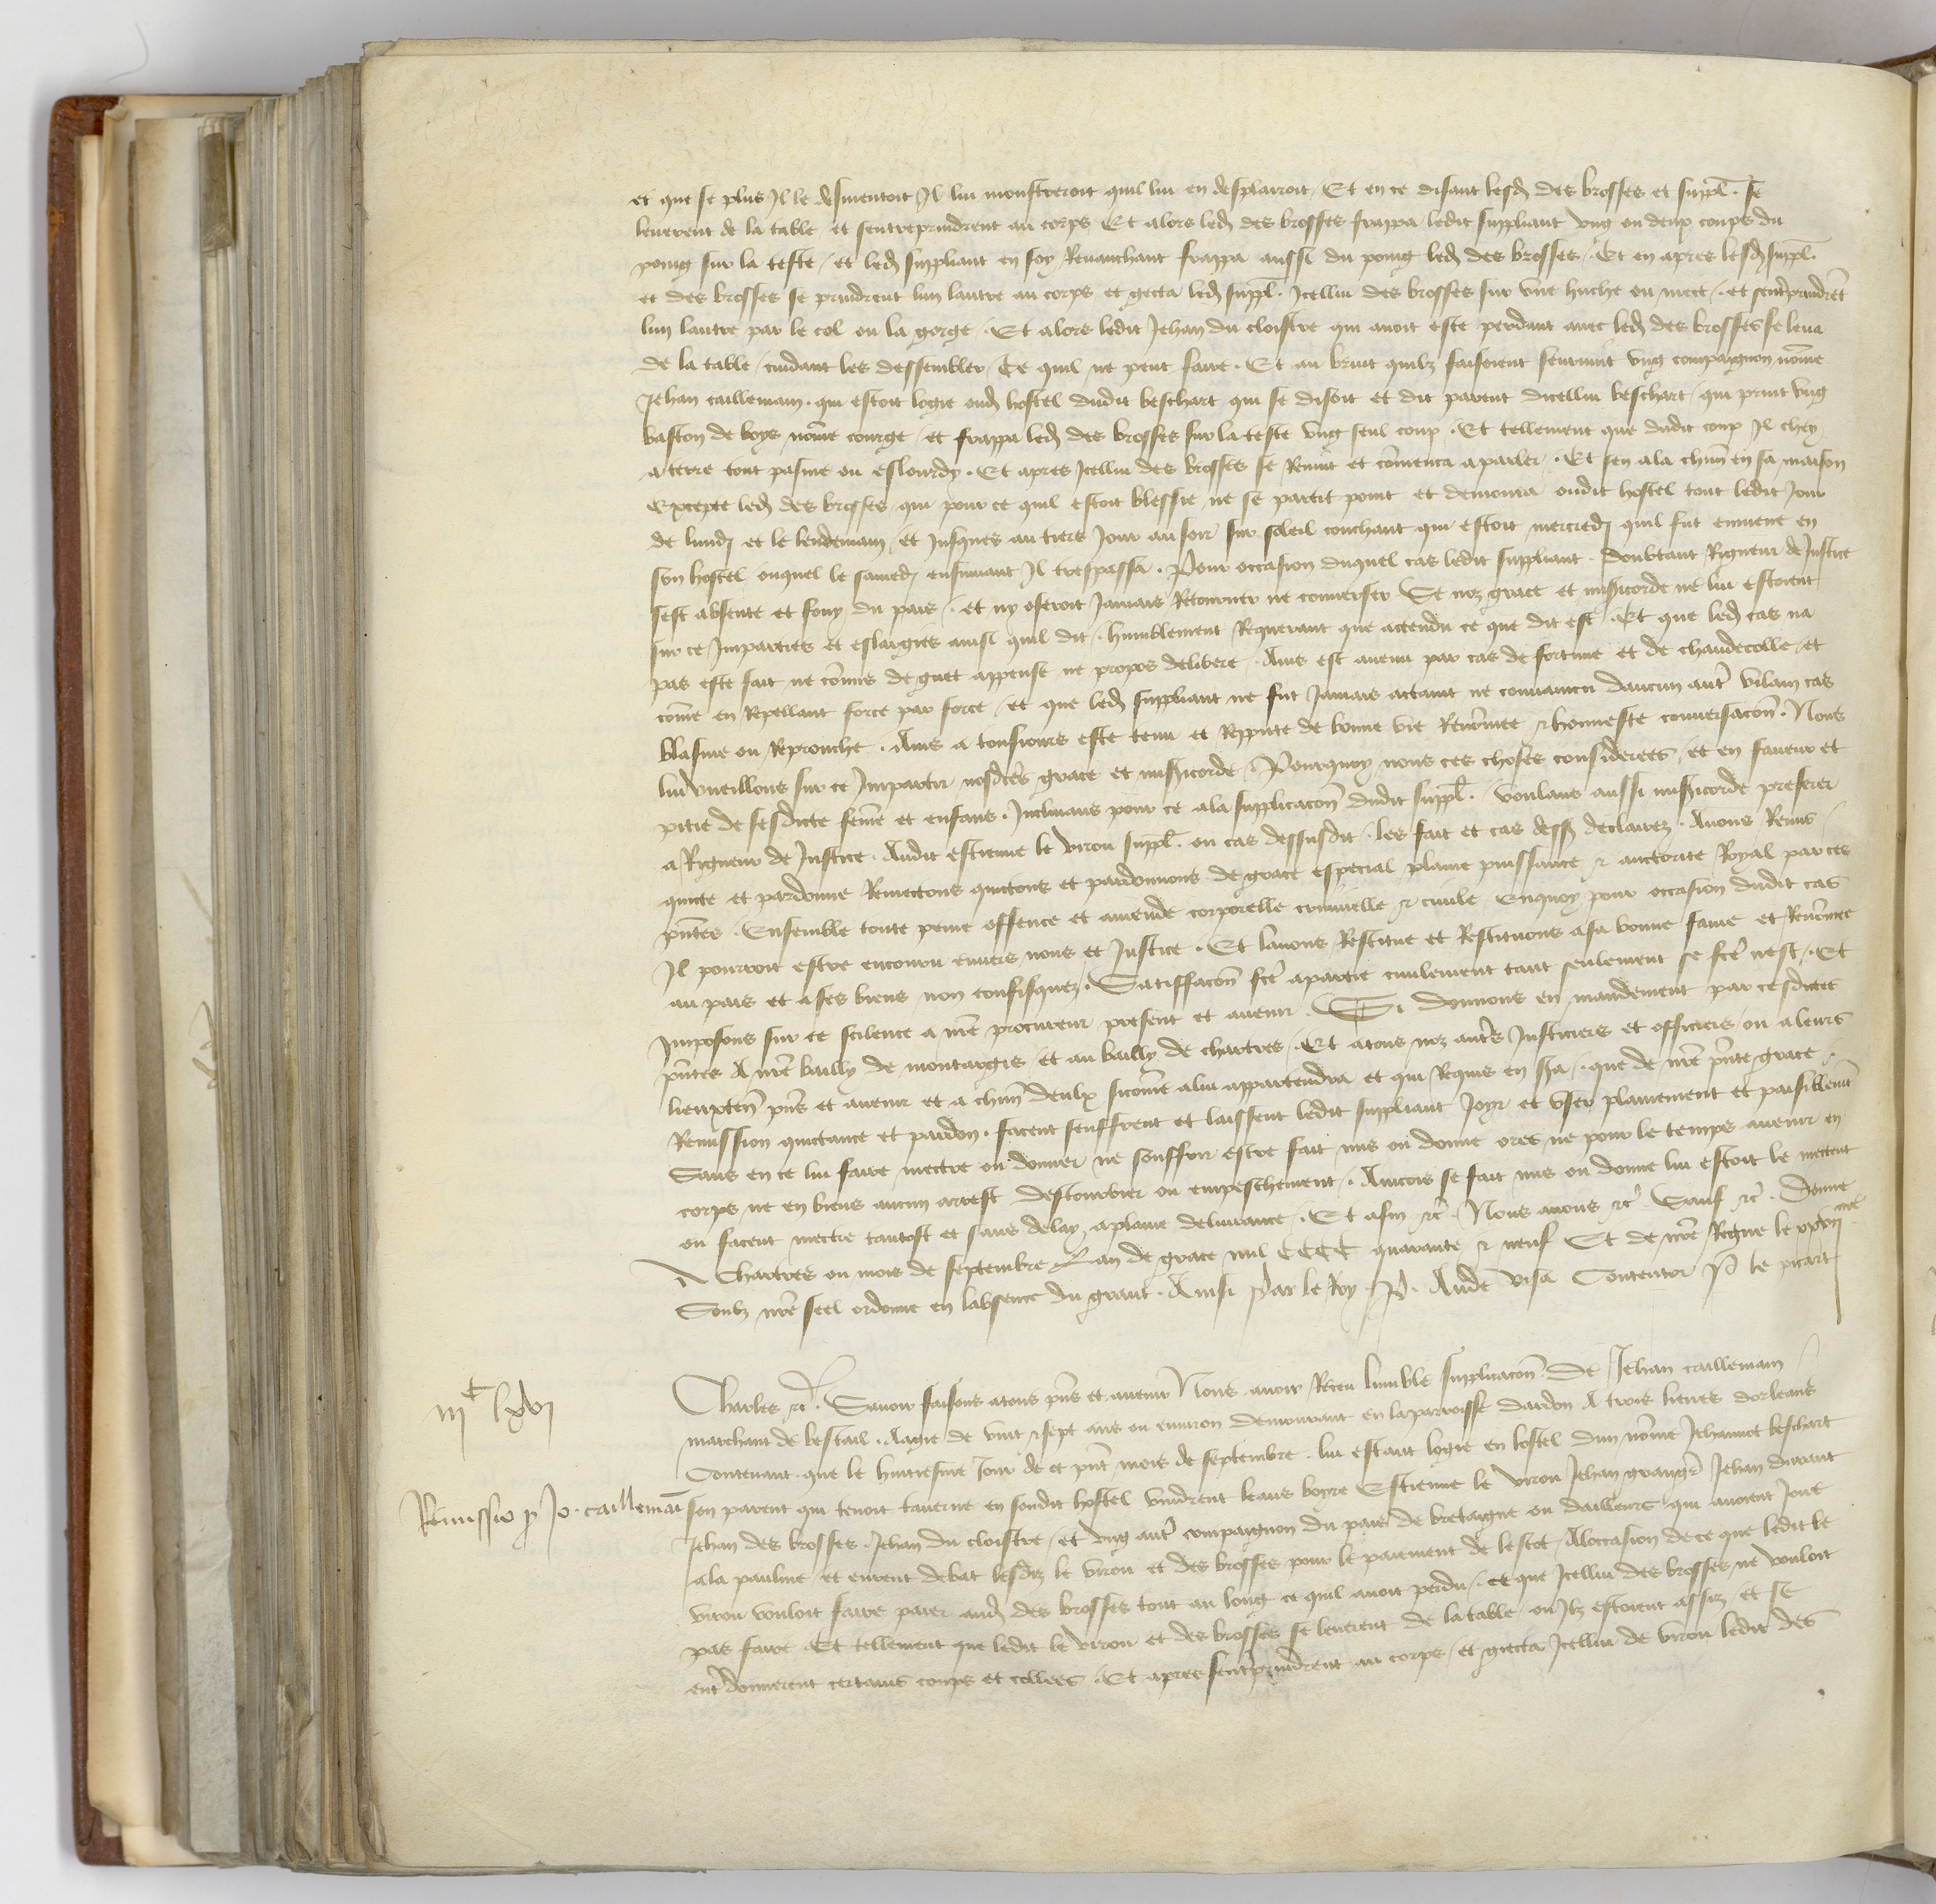 et que se plus Il le desmentoit Il lui monstreroit quil lui en desplairoit / Et en ce disant lesd des brosses et suppl. se
leverent de la table et sentreprindrent au corps Et alors led des brosses frappa ledit suppliant ung ou deux coups du
poing sur la teste / et led suppliant en soy Revanchant frappa aussi du poing led des brosses / Et en apres lesd suppl.
et des brosses se prindrent lun lautre au corps et gecta led suppl. Icellui des brosses sur une huche ou mect / et sentprindret
lun lautre par le col ou la gorge . Et alors ledit Jehan du cloistre qui avoit este perdant avec led des brosses se leva
de la table / cuidant les dessembler / Ce quil ne peut faire . Et au bruit quilz faisoient seurvint ung compaignon nome
Jehan caillemain . qui estoit logie oud hostel dudit beschart qui se disoit et dit parent dicellui beschart / qui print ung
baston de boys nome courge / et frappa led des brosses sur la teste ung seul coup . Et tellement que dudit coup Il chey
a terre tout pasme ou eslourdy . Et apres Icellui des brosses se Revint et comenca a parler . Et sen ala chun en sa maison
Excepte led des brosses / qui pour ce quil estoit blessie ne se partit point et demoura oudit hostel tout ledit Jour
de lundj et le lendemain / et Jusques au tiers Jour au soir sur soleil couchant qui estoit mercredj quil fut enmene en
son hostel / ouquel le samedj ensuivant Il trespassa . Pour occasion duquel cas ledit suppliant . doubtant Rigueur de Justice
sest absente et fouy du pais / et ny oseroit Jamais Retourner ne converser Se noz grace et misicorde ne lui estoient
sur ce Imparties et eslargies ainsi quil dit / humblement Requerant que actendu ce que dit est / Et que led cas na
pas este fait ne comis de guet appense ne propos delibere . Ains est avenu par cas de fortune et de chaudecolle / et
come en Repellant force par force / et que led suppliant ne fut Jamais actaint ne convaincu daucun autr vilain cas
blasme ou Reprouche . Ains a tousiours este tenu et Reppute de bonne vie Renomee et honneste conversacon . Nous
lui vueillons sur ce Impartir nosdes grace et misicorde / Pourquoy nous ces choses considerees / et en faveur et
pitie de sesdicte feme et enfans . Inclinans pour ce ala supplicacon dudit suppl. / voulans aussi misicorde preferer
a Rigueur de Justice . Audit estienne le viron suppl. ou cas dessusdit . les fait et cas dess declairez . Avons Remis
quicte et pardonne Remectons quictons et pardonnons de grace especial plaine puissance et auctorite Royal par ces
pntes . Ensemble toute peine offence et amende corporelle criminelle et civile Enquoy pour occasion dudit cas
Il pourroit estre encouru envers nous et Justice . Et lavons Restitue et Restituons asa bonne fame et Renomee
au pais et ases biens non confisquez . Satisffacon fcte apartie civilement tant seulement se fcte nest / Et
Imposons sur ce scilence a nre procureur present et avenir . Si donnons en mandement par cesdictes
pntes A nre bailly de montargis et au bailly de chartres / Et atous noz autrs Justiciers et officiers / ou aleurs
lieuxten pns et avenir et a chun deulx sicome alui appartendra et qui Requis en sa / que de nre pnte grace
Remission quictance et pardon . facent seuffrent et laissent ledit suppliant Joyr et user plainement et paisiblemt
Sans en ce lui faire mectre ou donner ne souffrir estre fait mis ou donne ores ne pour le temps avenir en
corps ne en biens aucun arrest destourbier ou empeschement . Aincois se fait mis ou donne lui estoit le mectent
ou facent mectre tantost et sans delay aplaine delivrance / Et afin etc / Nous avons etc Sauf etc . Donne
A Chartres ou mois de septembre Lan de grace mil CCCC quarante et neuf Et de nre Regne le xxvijme
Soubz nre seel ordonne en labsence du grant . Ainsi Par le Roy . P. Aude visa Contentor P le picart
iijc lxvj
Charles etc . Savoir faisons atous pns et avenir Nous avoir Receu lumble supplicacon De Jehan caillemain
marchant de bestail . Aagie de vint et sept ans ou environ demourant en laparroisse dardon A trois lieues dorleans
Contenant . que le huitiesme Jour de ce pnt mois de septembre . lui estant logie en lostel dun nome Jehannot beschart
Remissio p Jo . caillemain
son parent qui tenoit taverne en sondit hostel vindrent leans boyre Estienne le viron Jehan grangr Jehan durant
Jehan des brosses . Jehan du cloistre / et ung autr compaignon du pais de bretaigne ou dailleurs qui avoient Joue
ala paulme et eurent debat lesdiz le viron et des brosses pour le paiement de lescot / Aloccasion de ce que ledit le
viron vouloit faire paier aud des brosses tout au long ce quil avoit perdu / et que Icellui des brosses ne vouloit
pas faire Et tellement que ledit le viron et des brosses se leverent de latable ou Ilz estoient assiz et se
entdonnerent certains coups et collees . Et apres sentprindrent au corps / et giecta Icellui de viron ledit des